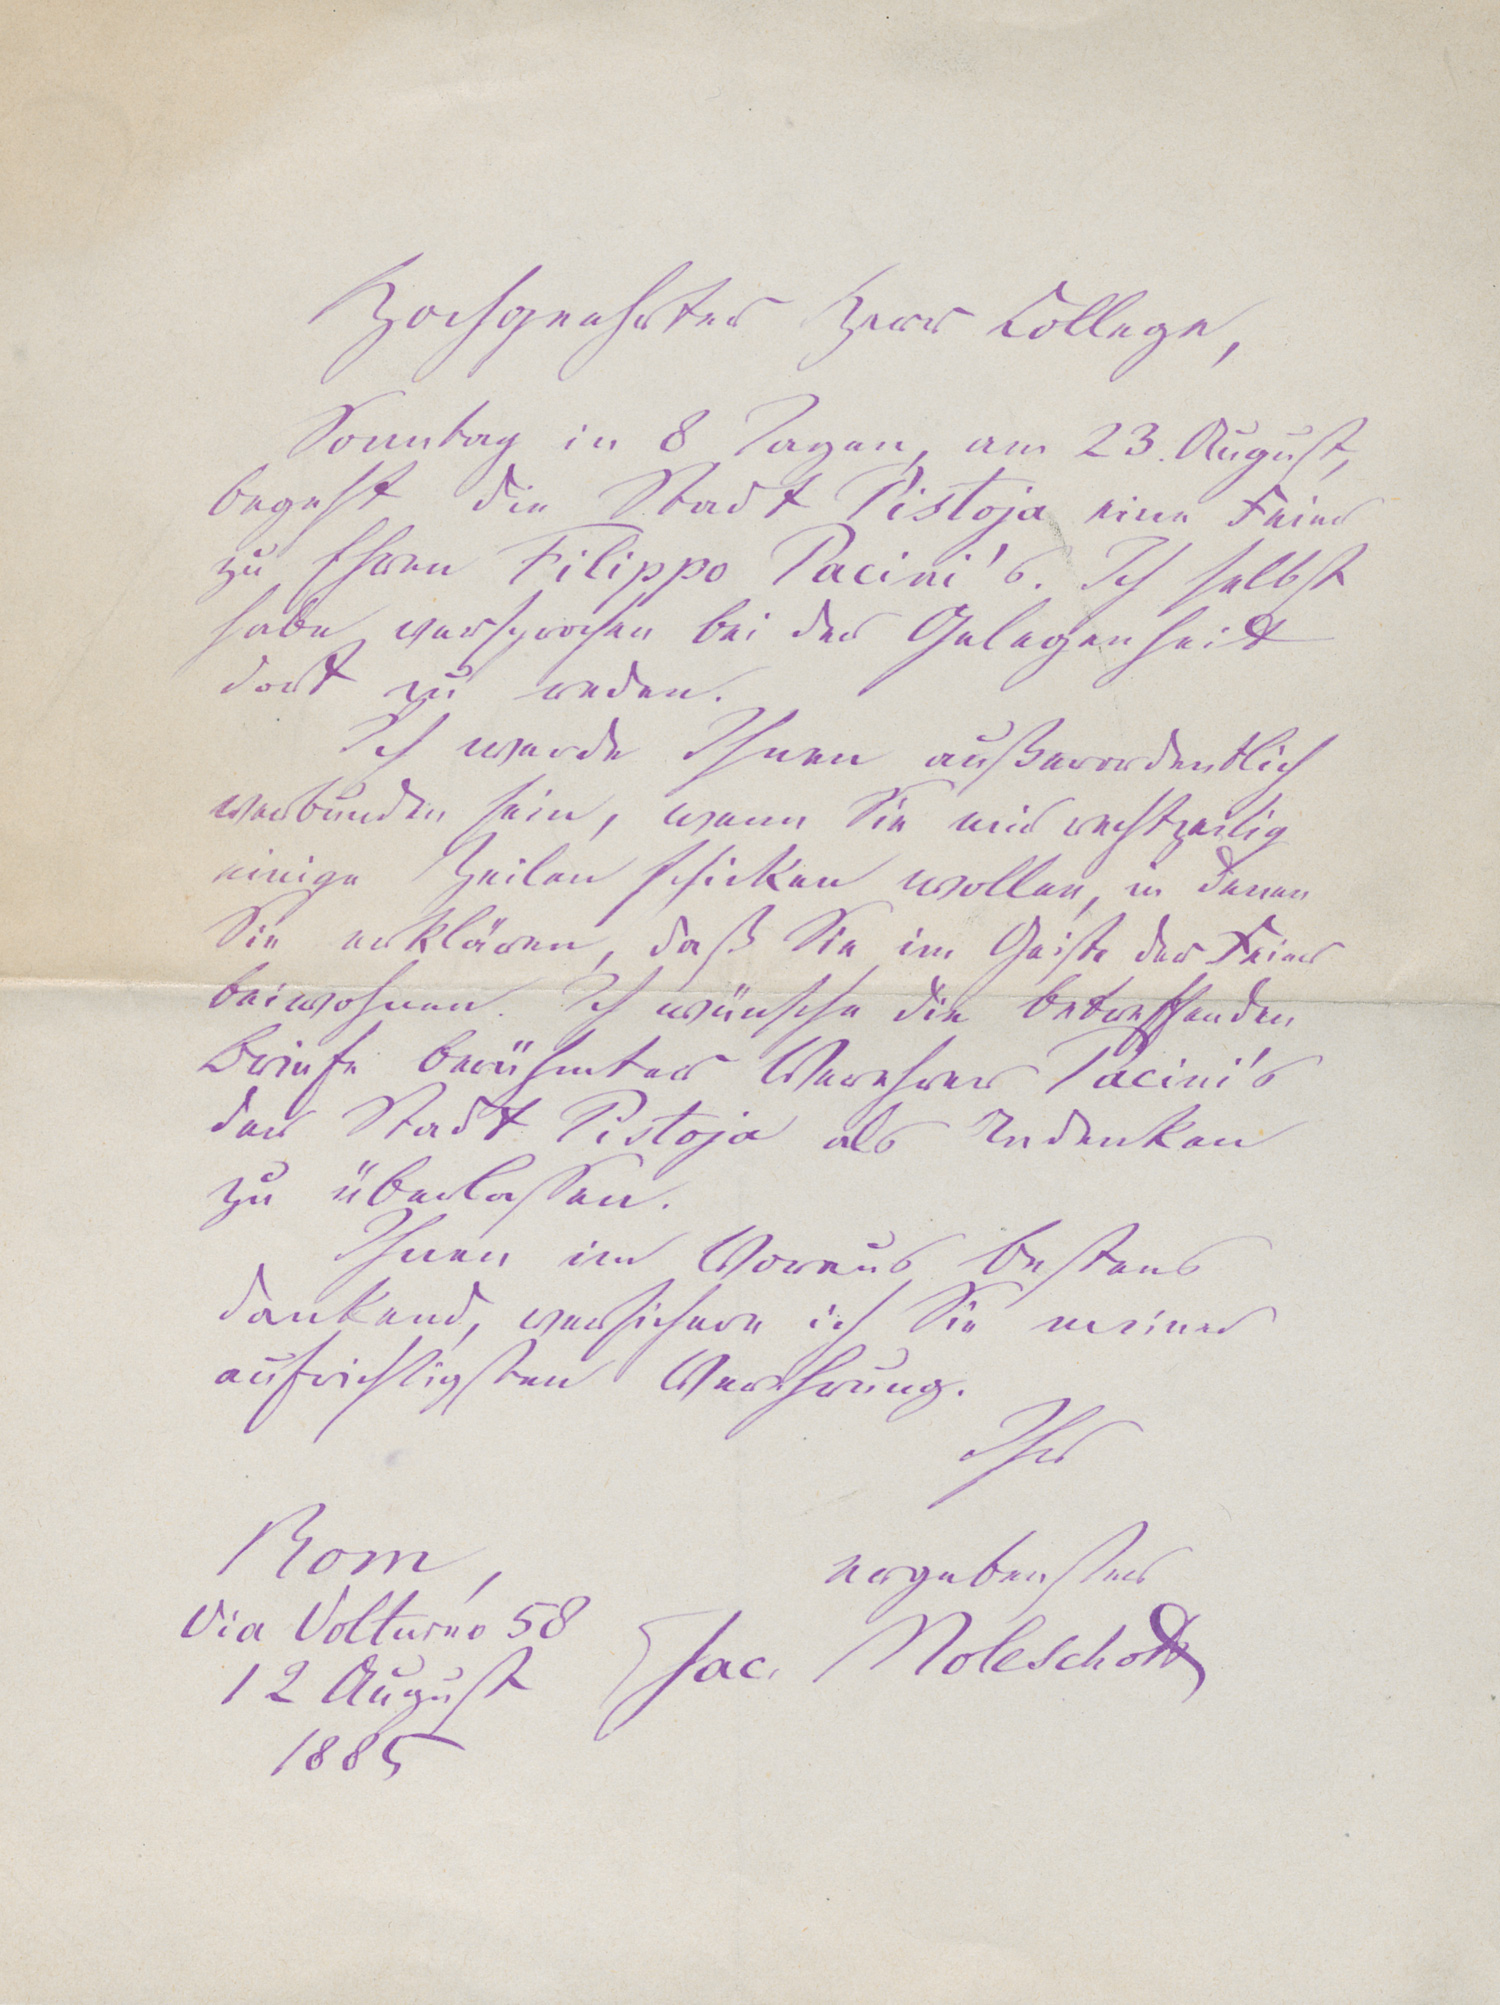 Hochgeehrter Herr College,
Sonntag in 8 Tagen, am 23. August,
begeht die Stadt Pistoja eine Feier
zu Ehren Filippo Pacini's. Ich selbst
habe versprochen bei der Gelegenheit
dort zu reden.
Ich werde Ihnen außerordentlich
verbunden sein, wenn Sie mir rechtzeitig
einige Zeilen schicken wollen, in denen
Sie erklären, daß Sie im Geiste der Feier
beiwohnen. Ich wünsche die betreffenden
Briefe berühmter Verehrer Pacini's
der Stadt Pistoja als Andenken
zu überlassen.
Ihnen im Voraus bestens
dankend, versichere ich Sie meiner
aufrichtigsten Verehrung.
Ihr
ergebenster
Jac. Moleschott
Rom,
Via Volturno 58
12 August
1885